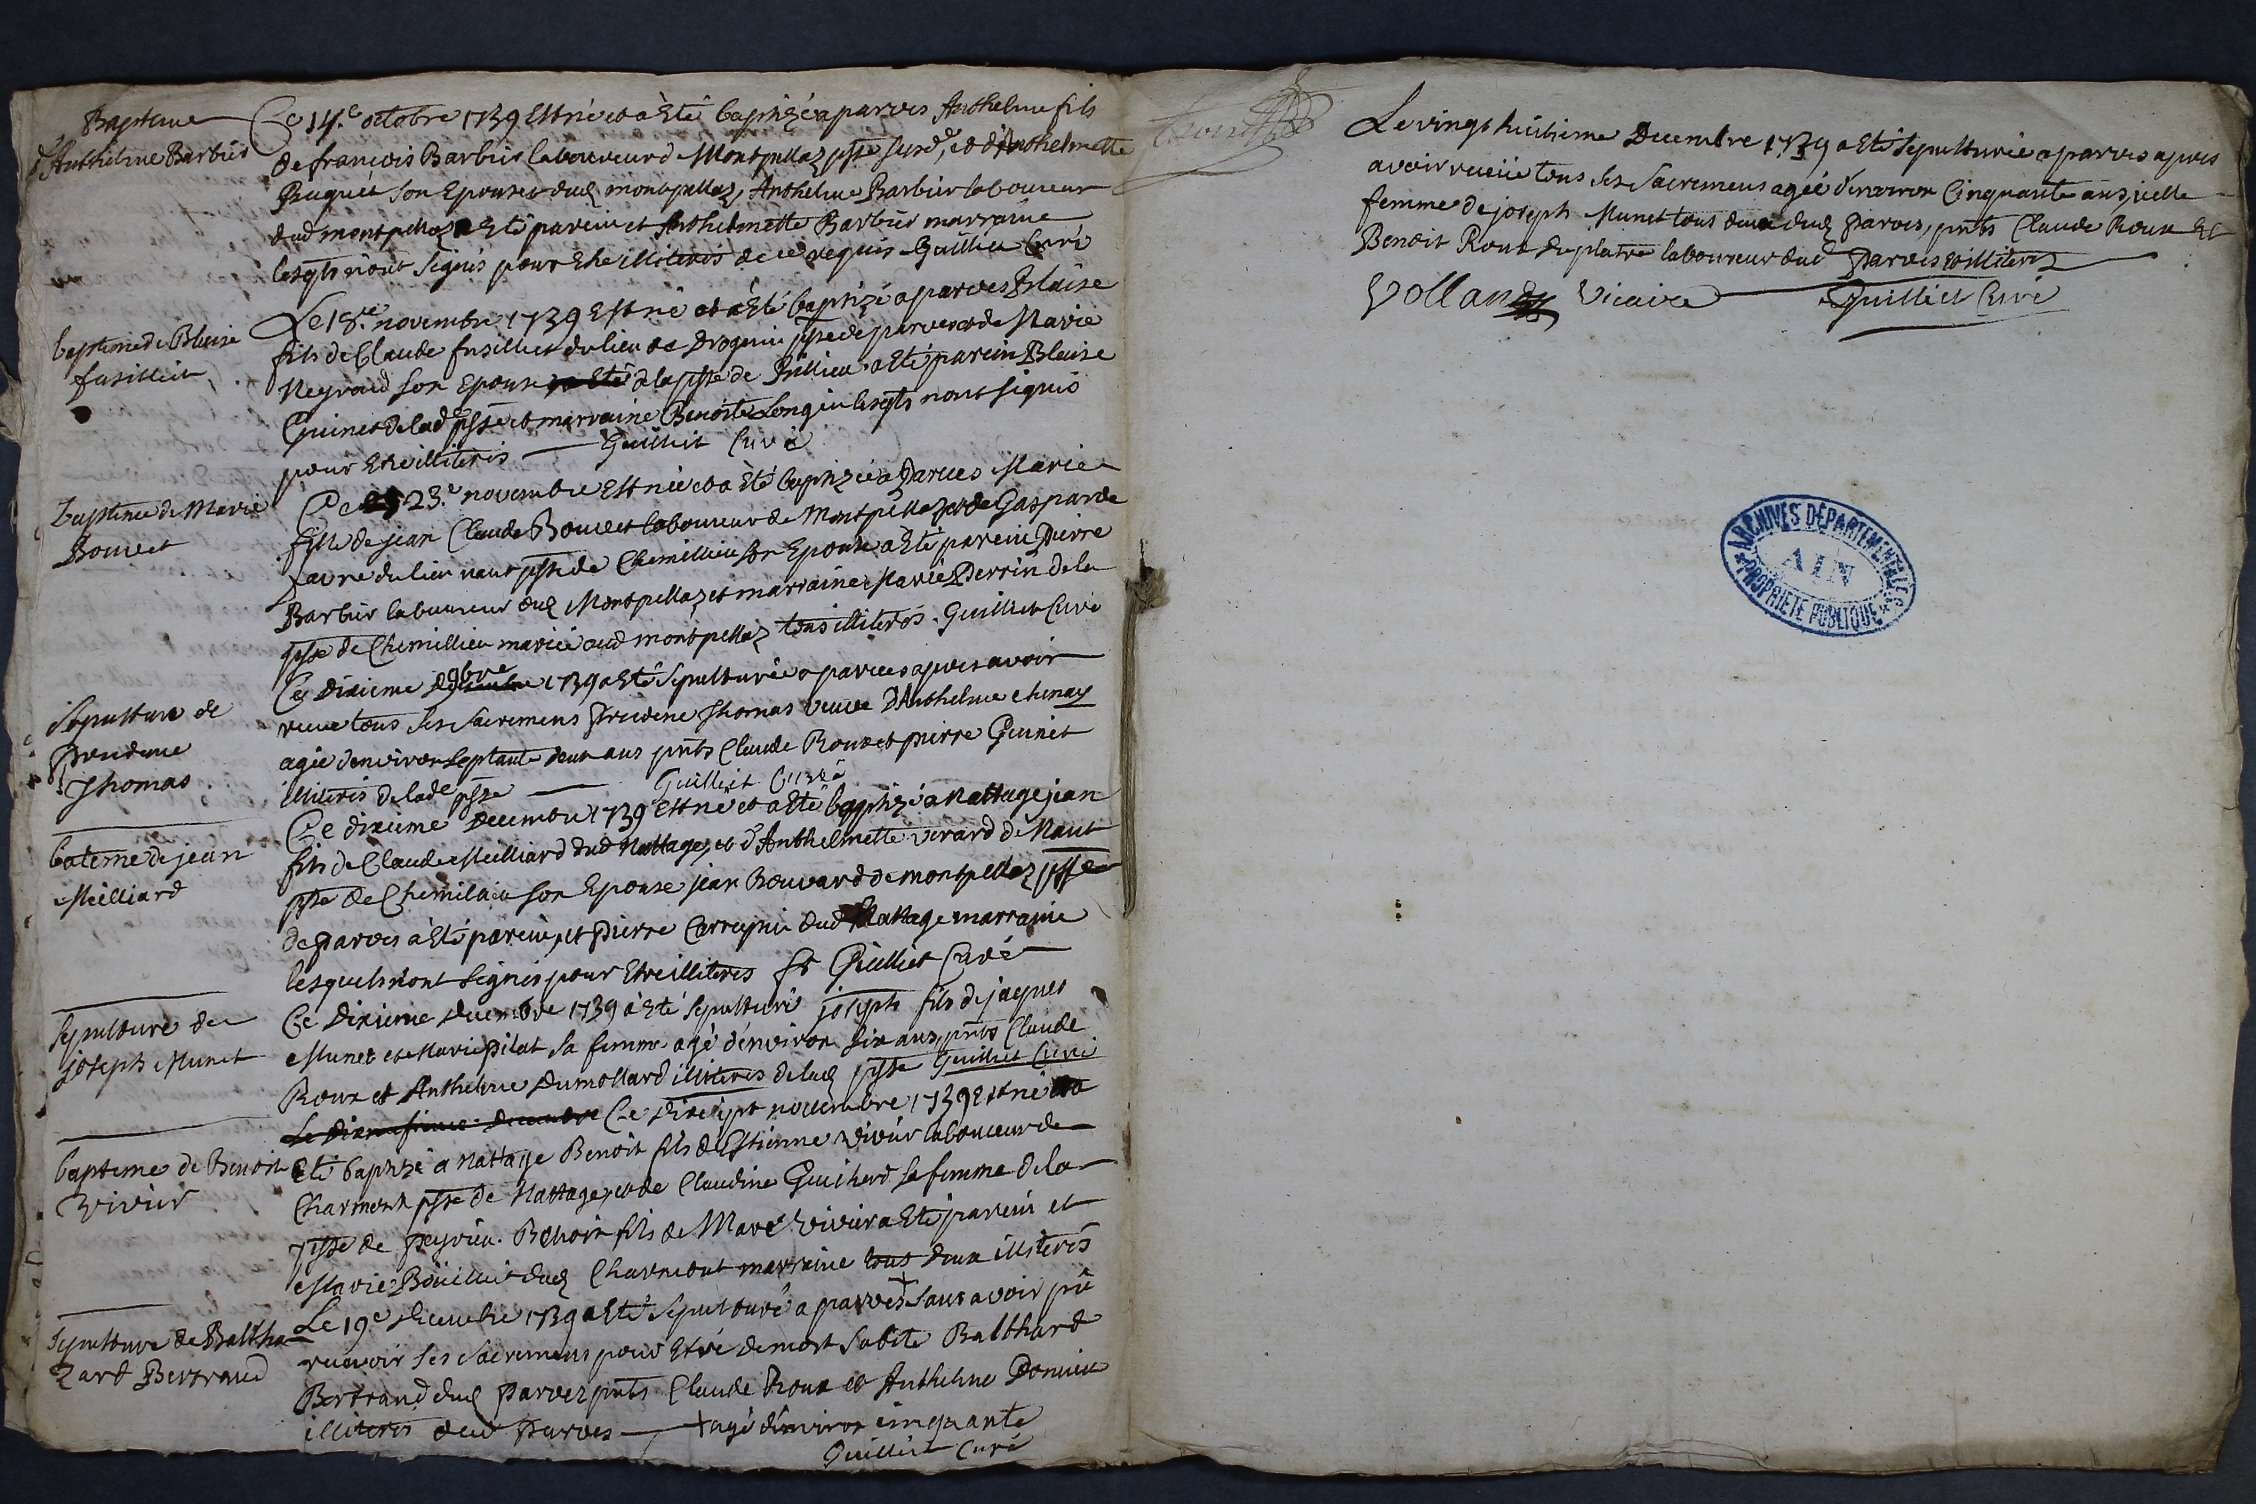 Bapteme
d'Anthelme Barbier
Ce 14.e octobre 1739 Est né et a Eté baptizé a parves Anthelme fils
de francois Barbier laboureur de Montpellaz psse susd.e, et d'Anthelmette
son Epouse dud montpellaz, Anthelme Barbier laboureur
dud montpellaz a Eté parein et Anthelmette Barbier marraine
lesqls n'ont signés pour Etre illiterés de ce requis Guilliet Curé
bapteme de Blaise
fusilliet
Le 18.e novembre 1739 Est né et a Eté baptizé a parves Blaise
fils de Claude fusilliet du lieu de psse de parves et de Marie
Neyroud son Epouse de la psse de a Eté parein Blaise
Guinet de lad psse et marraine Benoite Longin lesqls n'ont signés
pour Etre illiterés Guilliet Curé
baptême de Marie
Bouvet
Ce 23.e novembre Est née et a Eté baptizée a Parves Marie
fille de jean Claude Bouvet laboureur de Montpellaz et de Gasparde
favre du lieu nant psse de Chemillieu son Epouse a Eté parein Pierre
Barbier laboureur dud Montpellaz et marraine Marie Perrin de la
psse de Chemillieu mariée aud montpellaz tous illiterés. Guilliet Curé
Sepulture de
prudence
Thomas
Ce dixieme 9bre 1739 a Eté sepulturée a parves apres avoir
receu tous ses sacremens Prudence Thomas veuve D'Anthelme chenay
agée d'environ septante deux ans pnts Claude Roux et pierre Guinet
illiterés de lade psse Guilliet Curé
bateme de jean
Milliard
Ce dixieme Decembre 1739 Est né et a Eté baptizé a Nattage jean
fils de Claude Milliard dud Nattage, et d'Anthelmette verard de Nant
psse de Chemilieu son Epouse jean Bouvard de montpellaz psse
de parves a Eté parein, et Pierre dud Nattage marraine
lesquels n'ont signés pour Etre illiterés Guilliet Curé
Sepulture de
joseph Munet
Ce Dixieme Decembre 1739 a Eté sepulturé joseph fils de jaques
Munet et Marie Pilat sa femme agé d'environ six ans, pnts Claude
Roux et Anthelme Dumollard illiterés de lad psse Guilliet Curé
bapteme de Benoit
vivier
Ce Dixsept novembre 1739 Est né et a
Eté baptizé a Nattage Benoit fils d'Estienne vivier laboureur de
Charmont psse de Nattage, et de Claudine Guicherd sa femme de la
psse de peyrieu. Benoit fils de Marc vivier a Eté parein et
Marie dud Charmont marraine tous deux illiterés
Sepulture de Baltha
zard Bertrand
Le 19.e Decembre 1739 a Eté sepulturé a parves + sans avoir pû
recevoir ses sacremens pour Etre de mort subite Balthard
Bertrand dud Parves pnts Claude Roux et Anthelme
illiterés dud Parves + agé d'environ cinquante
Guilliet Curé
Le vingt huitieme Decembre 1739 a Eté sepulturée a parves apres
avoir receüe tous ses sacremens agée d'environ Cinquante ans,
femme de joseph Munet tous deux dud Parves, pnts Claude Roux Et
Benoit Roux du platre laboureur dud Parves illiterez
Vollan Vicaire Guilliet Curé
ARCHIVES DÉPARTEMENTALES
AIN
PROPRIÉTÉ PUBLIQUE